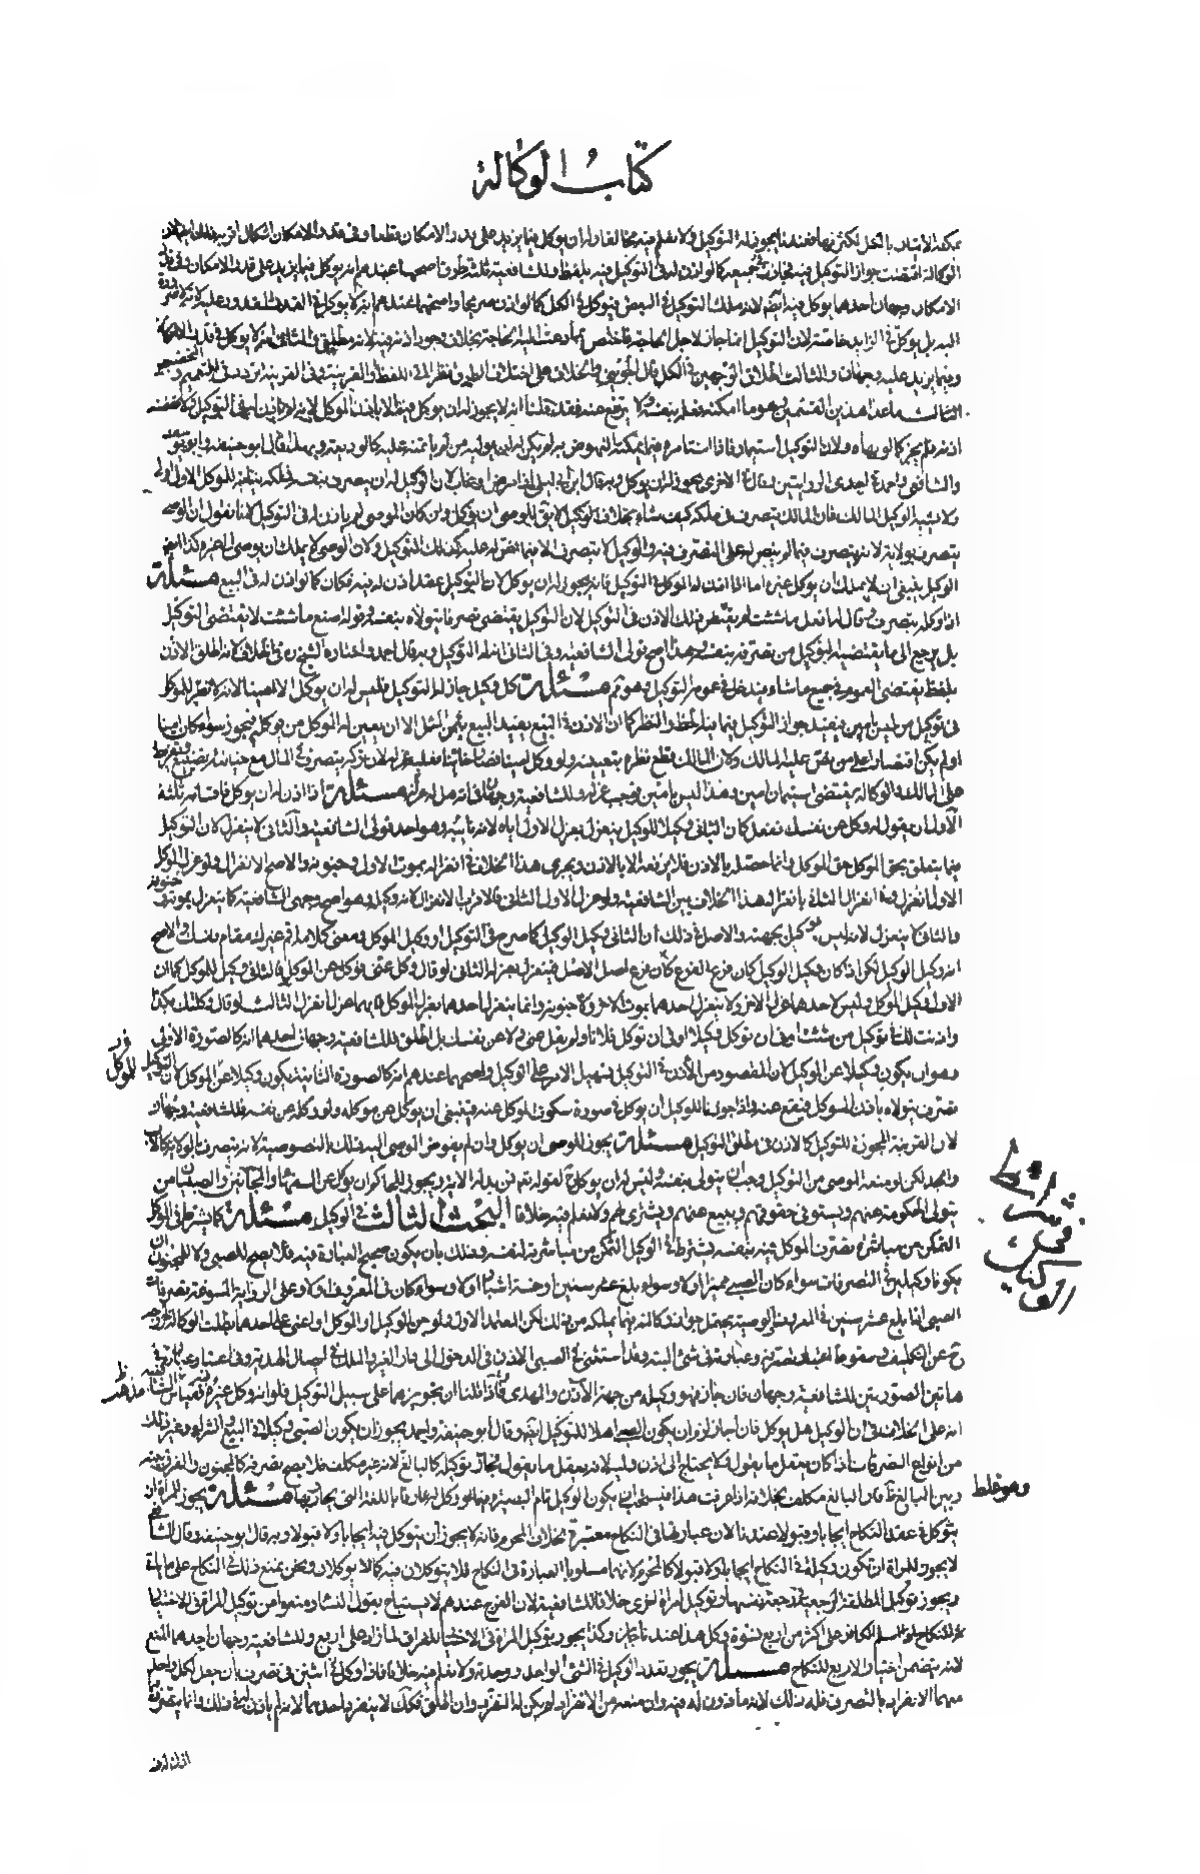 كتاب الوكالة
يمكنه الإتيان بالكل لكثرتها فعندنا يجوز له التوكيل ولا نعلم فيه مخالفا وله أن يوكل فيما يزيد على قدر الإمكان قطعا وفي قدر الإمكان إشكال أقربه ذلك أيضا لأن
الوكالة اقتضت جواز التوكيل فيه فجازت في جميعه كما لو أذن له في التوكيل فيه بلفظه وللشافعية ثلثة طرق أصحها عندهم أنه يوكل فيما يزيد على قدر الإمكان وفي قدر
الإمكان وجهان أحدهما يوكل فيه أيضا لأنه ملك التوكيل في البعض فيوكل في الكل كما لو أذن صريحا وأصحهما عندهم أنه لا يوكل في القدر المقدور عليه لأنه لا ضرورة
إليه بل يوكل في الزايد خاصة لأن التوكيل إنما جاز لأجل الحاجة فاختص بما دعت إليه الحاجة بخلاف وجود إذنه فيه لأنه مطلق والثاني أنه لا يوكل في قدر الإمكان
وفيما يزيد عليه وجهان والثالث إطلاق الوجهين في الكل قال الجويني والخلاف على اختلاف الطريق نظرا إلى اللفظ أو القرينة وفي القرينة تردد في التعميم والتخصيص
الثالث ما عدا هذين القسمين وهو ما أمكنه فعله بنفسه ولا يرتفع عنه فقد قلنا أنه لا يجوز له أن يوكل فيه إلا بإذن الموكل لأنه لم يأذن له في التوكيل ولا تضمنه
إذنه فلم يجز كما لو نهاه ولأن التوكيل استيمان فإذا استأمره فيما يمكنه النهوض به لم يكن له أن يوليه من لم يأتمنه عليه كالوديعة وبهذا قال أبو حنيفة وأبو يوسف
والشافعي وأحمد في إحدى الروايتين وقال في الأخرى يجوز له أن يوكل وبه قال ابن أبي ليلى إذا مرض أو غاب لأن الوكيل له أن يتصرف بنفسه فملكه بنائبه كالموكل الأول أولى
ولا يشبه الوكيل المالك فإن المالك يتصرف في ملكه كيف شاء بخلاف الوكيل لا يقال الوصي أن يوكل وإن كان الموصي لم يأذن له في التوكيل لأنا نقول إن الوصي
يتصرف بولاية لأنه يتصرف فيما لم ينص له على التصرف فيه والوكيل لا يتصرف إلا فيما نص له عليه كذلك التوكيل ولأن الوصي لا يملك أن يوصي إلى غيره فكذا
الوكيل ينبغي أن لا يملك أن يوكل غيره أما إذا أذن له الموكل في التوكيل فإنه يجوز له أن يوكل لأن التوكيل عقد أذن له فيه فكان كما لو أذن له في البيع مسئلة
إذا وكله بتصرف وقال له افعل ما شئت لم يقتض ذلك الإذن في التوكيل لأن التوكيل يقتضي تصرفا يتولاه بنفسه وقوله اصنع ما شئت لا يقتضي التوكيل
بل يرجع إلى ما يقتضيه التوكيل من تصرفه بنفسه وهذا أصح قولي الشافعية وفي الثاني أن له التوكيل وبه قال أحمد واختاره الشيخ ره في الخلاف لأنه أطلق الإذن
بلفظ يقتضي العموم في جميع ما شاء فيدخل في عمومه التوكيل وهو ثم مسئلة كل وكيل جاز له التوكيل فليس له أن يوكل إلا أمينا لأنه لا نظر للموكل
في توكيل من ليس بأمين فيقيد جواز التوكيل فيما فيه الحظ والنظر كما أن الإذن في البيع يقيد البيع بثمن المثل إلا أن يعين له الموكل من يوكله فيجوز سواء كان أمينا
أو لم يكن اقتصارا على من نص عليه المالك ولأن المالك قطع نظره بتعيينه ولو وكل أمينا فصار خائنا فعليه عزله لأن تركه يتصرف في المال مع خيانته تضييع وتفريط
على المالك والوكالة تقتضي استيمان أمين وهذا ليس بأمين فوجب عزله وللشافعية وجهان في أنه هل له عزله مسئلة إذا أذن له أن يوكل فأقسامه ثلثة
الأول أن يقول له وكل عن نفسك ففعل كان الثاني وكيلا للوكيل ينعزل بعزل الأول إياه لأنه نائبه وهو أحد قولي الشافعية والثاني لا ينعزل لأن التوكيل
فيما يتعلق بحق الموكل حق الموكل وإنما حصل بالإذن فلا يرفعه إلا بالإذن ويجري هذا الخلاف في انعزاله بموت الأول وجنونه والأصح الانعزال ولو عزل الموكل
الأول انعزل وفي انعزال الثاني بانعزاله هذا الخلاف بين الشافعية ولو عزل الأول الثاني فالأقرب الانعزال لأنه وكيله وهو أصح وجهي الشافعية كما ينعزل بموته وجنونه
والثاني لا ينعزل لأنه ليس بوكيل بجهته والأصل في ذلك أن الثاني وكيل الوكيل كما صرح في التوكيل أو وكيل الموكل ومعنى كلامه أقم غيرك مقام نفسك والأصح
أنه وكيل الوكيل لكن إذا كان وكيل الوكيل كان فرع الفرع كأن فرع أصل الأصل فينعزل بعزله الثاني لو قال وكل عني فوكل عن الموكل فالثاني وكيل للموكل كما أن
الأول وكيل الموكل وليس لأحدهما عزل الآخر ولا ينعزل أحدهما بموت الآخر ولا جنونه وإنما ينعزل أحدهما بعزل الموكل فأيهما عزل انعزل الثالث لو قال وكلتك بكذا
وأذنت لك في توكيل من شئت أو في أن توكل وكيلا أو في أن توكل فلانا ولم يقل عني ولا عن نفسك بل أطلق فللشافعية وجهان أحدهما أنه كالصورة الأولى
وهو أن يكون وكيلا عن الوكيل لأن المقصود من الإذن في التوكيل تسهيل الأمر على الوكيل وأصحهما عندهم أنه كالصورة الثانية يكون وكيلا عن الموكل لأن التوكيل
للموكل
تصرف يتولاه بإذن الموكل فيقع عنه وإذا جوزنا للوكيل أن يوكل في صورة سكوت الموكل عنه فينبغي أن يوكل عن موكله ولو وكله عن نفسه فللشافعية وجهان
لأن القرينة المجوزة للتوكيل كالإذن في مطلق التوكيل مسئلة يجوز للوصي أن يوكل وإن لم يفوض الموصي إليه ذلك بالنصوصية لأنه يتصرف بالولاية كالأب
والجد لكن لو منعه الموصي من التوكيل وجب أن يتولى بنفسه وليس له أن يوكل لقوله تع فمن بدله الآية ويجوز للحاكم أن يوكل عن السفهاء والمجانين والصبيان من
يتولى الحكومة عنهم ويستوفي حقوقهم ويبيع عنهم ويشتري لهم ولا نعلم فيه خلافا البحث الثالث في الوكيل مسئلة كما يشترط في الموكل
في شرائط الوكيل
التمكن من مباشرة تصرف الموكل فيه بنفسه يشترط في الوكيل التمكن من مباشرته لنفسه وذلك بأن يكون صحيح العبارة فيه فلا يصح للصبي ولا للمجنون أن
يكونا وكيلين في التصرفات سواء كان الصبي مميزا أو لا وسواء بلغ عشر سنين أو خمسة أشبار أو لا وسواء كان في المعروف أو لا وعلى الرواية المسوغة تصرفات
الصبي إذا بلغ عشر سنين في المعروف والوصية يحتمل جواز وكالته فيما يملكه من ذلك لكن المعتمد الأول ولو جن الوكيل أو الموكل أو أغمي على أحدهما بطلت الوكالة لخروجه
ح عن التكليف وسقوط اعتبار تصرفه وعبارته في شيء البتة وقد استثني في الصبي الإذن في الدخول إلى دار الغير والملك في إيصال الهدية وفي اعتبار عبارته في
هاتين الصورتين للشافعية وجهان فإن جاز فهو وكيله من جهة الآذن والمهدي فإذا قلنا أن تجويزهما على سبيل التوكيل فلو أنه وكل غيره فقياس الشافعية
مذهب
أنه على الخلاف في أن الوكيل هل يوكل فإن أجاز لزم أن يكون الصبي أهلا للتوكيل أيضا وقال أبو حنيفة وأحمد يجوز أن يكون الصبي وكيلا في البيع والشراء وغير ذلك
من أنواع التصرفات إذا كان يعقل ما يقول ولا يحتاج إلى إذن وليه لأنه يعقل ما يقول فجاز توكيله كالبالغ وهو غلط لأنه غير مكلف فلا يصح تصرفه كالمجنون والفرق بينه
وبين البالغ ظاهر فإن البالغ مكلف بخلافه إذا عرفت هذا فيستحب أن يكون الوكيل تام البصيرة فيما وكل فيه عارفا باللغة التي يحاور بها مسئلة يجوز للمرأة أن
تتوكل في عقد النكاح إيجابا وقبولا عندنا لأن عبارتها في النكاح معتبرة بخلاف المحرم فإنه لا يجوز أن يتوكل فيه إيجابا ولا قبولا وبه قال أبو حنيفة وقال الشافعي
لا يجوز للمرأة أن تكون وكيلة في النكاح إيجابا ولا قبولا كالمحرم لأنهما مسلوبا العبارة في النكاح فلا يتوكلان فيه كما لا يوكلان ونحن نمنع ذلك في النكاح على ما يأتي
ويجوز توكيل المطلقة الرجعية في رجعة نفسها وتوكيل امرأة أخرى خلافا للشافعية لأن الفرج عندهم لا يستباح بقول النساء ومنعوا من توكيل المرأة في الاختيار
للنكاح لو أسلم الكافر على أكثر من أربع نسوة وكل هذا عندنا جائز وكذا يجوز توكيل المرأة في الاختيار للفراق لما زاد على أربع وللشافعية وجهان أحدهما المنع
لأنه يتضمن اختيار الأربع للنكاح مسئلة يجوز تعدد الوكيل في الشيء الواحد ووحدته ولا نعلم فيه خلافا فإذا وكل اثنين في تصرف بأن جعل لكل واحد
منهما الانفراد بالتصرف فله ذلك لأنه مأذون له فيه وإن منعه من الانفراد لم يكن له التفرد وإن أطلق فكذلك لا ينفرد أحدهما لأنه لم يأذن له في ذلك وإنما يتصرف
وهو غلط